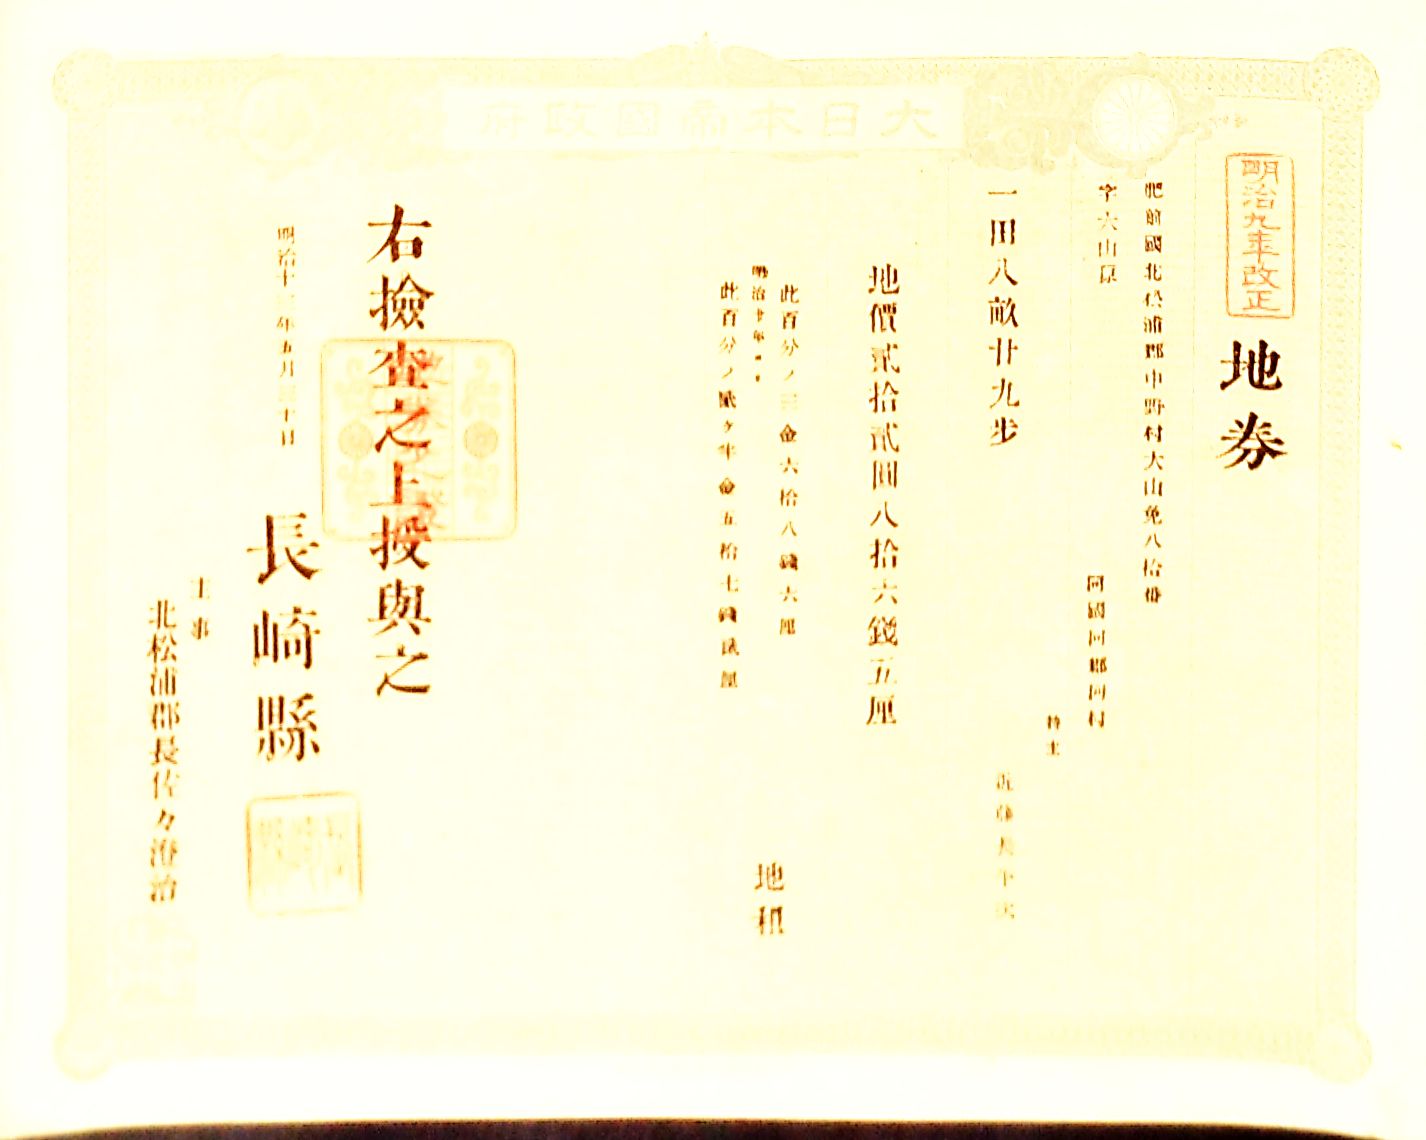 大日本帝國政府
明治九年改正
地券
肥前國北松浦郡中野村大山免八拾番
字六山原
同國同郡同村
持主
一田八畝廿九步
地價貳拾貳圓八拾六錢五厘
此百分ノ三金六拾八錢六厘
明治十年ヨリ
此百分ノ貳ヶ半金五拾七錢貳厘
地租
右撿查之上授與之
明治十三年五月三十日
長崎縣
主事
北松浦郡長佐々澄治